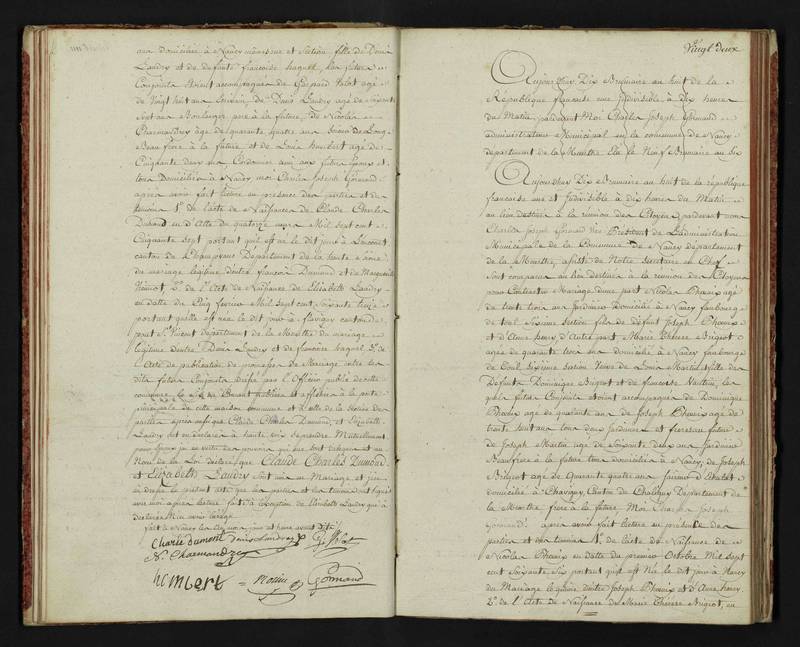 aux domicilié à Nancy même rue et Section fille de Denis
Landry et de défunte françoise haquel, les futurs
Conjoints étaient accompagnés de Gaspard Valot agé
de Vingt huit ans de Denis Landry agé de soixante
Sept ans Boulanger père à la future, de Nicolas
Charmandrez agé de quarante quatre ans
Beau frère à la future et de Louis humbert agé de
Cinquante deux ans Cordonnier ami aux futurs Epoux et
tous Domiciliés à Nancy moi Charles Joseph Gormand
après avoir fait lecture en présence des parties et des
témoins 1°. de l'acte de Naissance de Claude Charles
Dumond en datte du quatorze mars Mil sept cent
Cinquante sept portant qu'il est né le dit jour à
canton de Département de la haute Saône
du mariage légitime d'entre françois Dumond et de Marguerite
2°. de l'Acte de Naissance de Elisabeth Landry
en datte du Cinq fevrier Mil sept cent Soixante trois
portant qu'elle est née le dit jour à flavigny canton de
pont St Vincent département de la Meurthe du mariage
légitime d'entre Denis Landry et de françoise haquel 3°. de
l'Acte de publication de promesse de Mariage entre les
dits futurs Conjoints dressé par l'Officier public de cette
commune le et affichée à la porte
principale de cette maison commune et d'elle de la Section des
parties après aussi que Claude Charles Dumond, et Elizabeth
Landry ont eu déclaré à haute voix se prendre Mutuellement
pour Epoux je en vertu des pouvoirs qui me sont délégués et au
Nom de la Loi déclare que Claude Charles Dumond
et Elizabeth Landry sont unis en Mariage et j'ai
rédigé le présent acte que les parties et les témoins ont signé
avec moi après lecture faite à l'exception de Elizabeth Landry qui a
déclaré
fait à Nancy les dits jour, mois et heure avant dits
Charle dumont denis landry
N. Charmandrez
humbert = Gormand
Vingt deux
Aujourd'hui Dix Brumaire an huit de la
République française une indivisible à Dix heures
du Matin pardevant Moi Charles Joseph Gormand
administrateur Municipal en la commune de Nancy
département de la Meurthe Elu le Neuf Brumaire an Six
Aujourd'hui Dix Brumaire an huit de la république
française une et Indivisible à dix heures du Matin
au lieu destiné à la réunion des Citoyens pardevant nous
Charles Joseph Gormand Vice Président de L'administration
Municipale de la Commune de Nancy département
de la Meurthe, assisté de Notre Secrétaire en Chef
Sont comparus au lieu destiné à la réunion des Citoyens
pour Contracter Mariage d'une part Nicolas Phœnix agé
de trente trois ans Jardinier Domicilié à Nancy faubourg
de toul Sixième Section fils de défunt Joseph Phœnix
et d'Anne henry D'autre part Marie Thérèse Brigeot
agée de quarante trois ans domiciliée à Nancy faubourg
de Toul, sixième Section Veuve de Louis Martin et fille des
Défunts Dominique Brigeot et de françoise les
quels futurs Conjoints étaient accompagnés de Dominique
Phœnix agé de quarante ans de Joseph Phœnix agé de
trente huit ans tous deux Jardiniers et frères au futur
de Joseph Martin agé de Soixante deux ans Jardinier
Beau frère à la future tous domiciliés à Nancy, de Joseph
Brigeot agé de Quarante quatre ans
domicilié à Chavigny, Canton de Chaligny Département de
la Meurthe frère à la future Moi Charles Joseph
Gormand après avoir fait lecture en présence des
parties et des témoins 1°. de l'acte de Naissance de
Nicolas Phœnix en datte du premier Octobre Mil sept
cent Soixante six portant qu'il est Né le dit jour à Nancy
du Mariage légitime d'entre Joseph Phœnix et d'Anne henry
2°. de l'Acte de Naissance de Marie Thérèse Brigeot, en